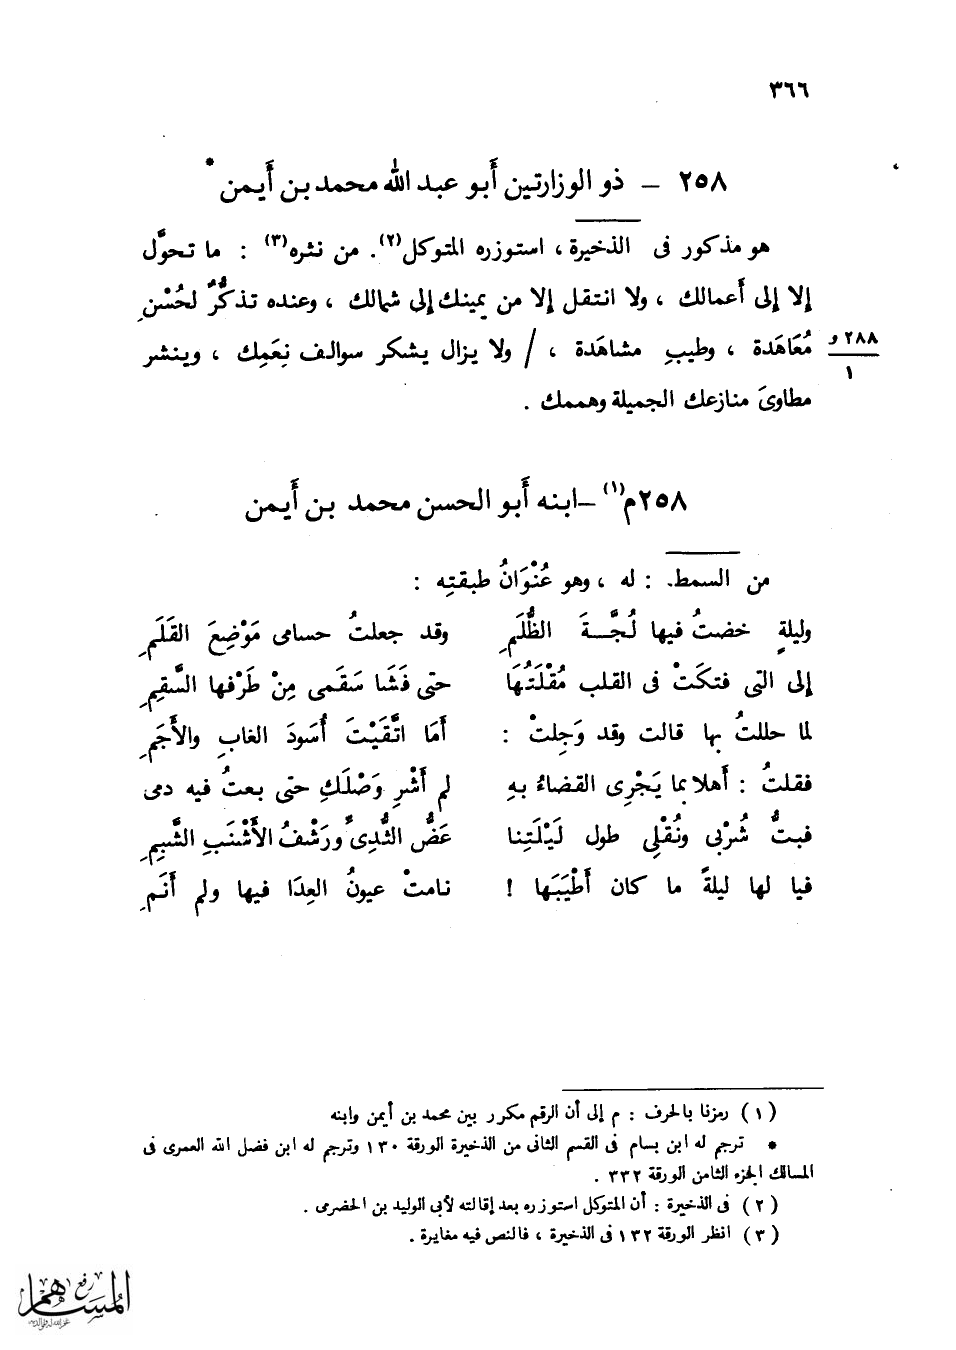 ٣٦٦
٢٥٨ – ذو الوزارتين أَبو عبد الله محمد بن أَيمن *
هو مذكور فى الذخيرة ، استوزره المتوكل(٢). من نثره(٣) : ما تحوَّل
إلا إلى أَعمالك ، ولا انتقل إلا من يمينك إلى شمالك ، وعنده تذكُّرٌ لحُسْنِ
مُعَاهَدة ، وطيبِ مشاهَدة ، / ولا يزال يشكر سوالف نِعَمِك ، وينشر
٢٨٨ و
١
مطاوىَ منازعك الجميلة وهممك .
٢٥٨م(١) – ابنه أَبو الحسن محمد بن أَيمن
من السمط : له ، وهو عُنْوَانُ طبقتِه :
وليلةٍ خضتُ فيها لُجَّـةَ الظُّلَمِ وقد جعلتُ حسامى مَوْضِعَ القَلَمِ
إلى التى فتكَتْ فى القلب مُقْلَتُهَا حتى فَشَا سَقَمى مِنْ طَرْفها السَّقِمِ
لما حللتُ بها قالت وقد وَجِلتْ : أَمَا اتَّقَيْتَ أُسَودَ الغابِ والأَجَمِ
فقلتُ : أَهلا بما يَجْرِى القضاءُ بهِ لم أَشْرِ وَصْلَكِ حتى بعتُ فيه دمى
فبتُّ شُرْبى ونُقْلِى طول لَيْلَتِنا عَضُّ الثُّدِىِّ ورَشْفُ الأَشْنَبِ الشَّبِمِ
فيا لها ليلةً ما كان أَطْيَبَها ! نامتْ عيونُ العِدَا فيها ولم أَنَمِ
(١) رمزنا بالحرف : م إلى أن الرقم مكرر بين محمد بن أيمن وابنه
* ترجم له ابن بسام فى القسم الثانى من الذخيرة الورقة ١٣٠ وترجم له ابن فضل الله العمرى فى
المسالك الجزء الثامن الورقة ٣٣٢ .
(٢) فى الذخيرة : أن المتوكل استوزره بعد إقالته لأبى الوليد بن الحضرمى .
(٣) انظر الورقة ١٣٢ فى الذخيرة ، فالنص فيه مغايرة .
رفع
المساهم